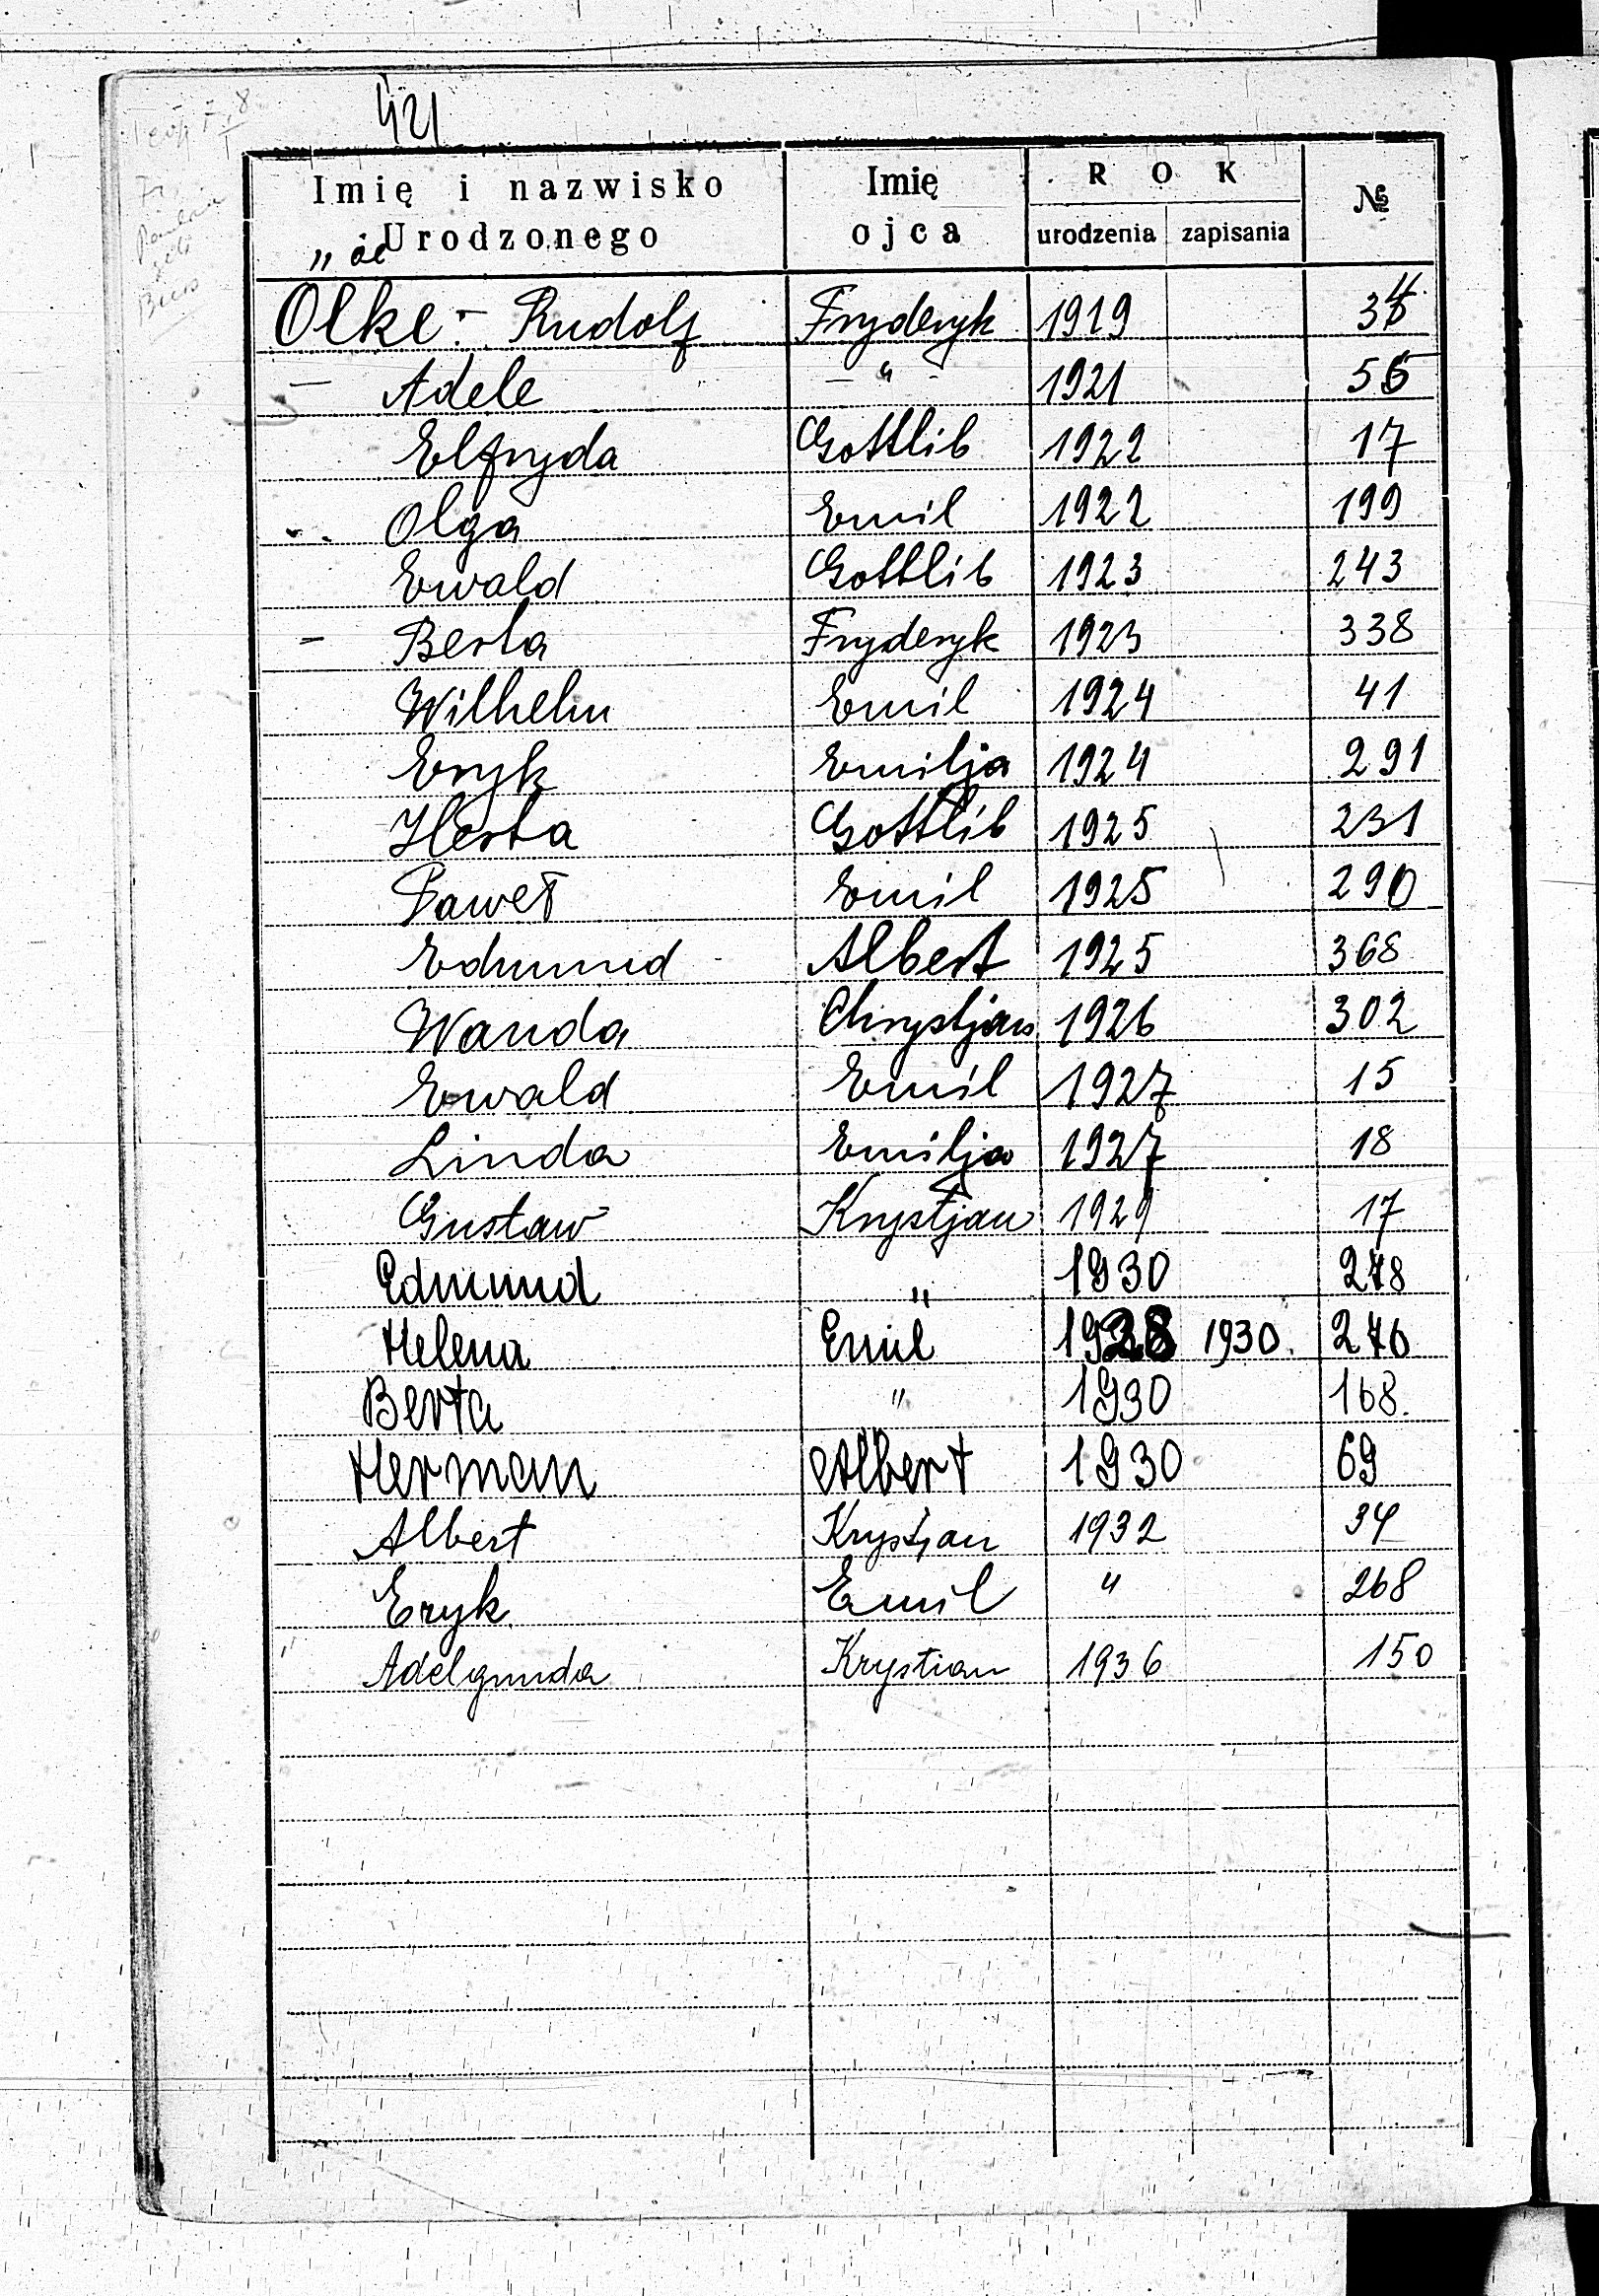 421
Imię i nazwisko Urodzonego Imię ojca ROK urodzenia zapisania №
Olke - Rudolf Fryderyk 1919
— Adele — " - 1921
Elfryda Gottlib 1922 17
Olga Emil 1922 199
Ewald Gottlib 1923 243
— Berta Fryderyk 1923 338
Wilhelm Emil 1924 41
Eryk Emilja 1924 291
Herta Gottlib 1925 231
Paweł Emil 1925 290
Edmund Albert 1925 368
Wanda Chrystjan 1926 302
Ewald Emil 1927 15
Linda Emilja 1927 18
Gustaw Krystjan 1929 17
Edmund " 1930 278
Helena Emil 1928 1930. 276
Berta " 1930 168.
Herman Albert 1930 69
Albert Krystjan 1932 34
Eryk Emil " 268
" Adelgunda Krystian 1936 150